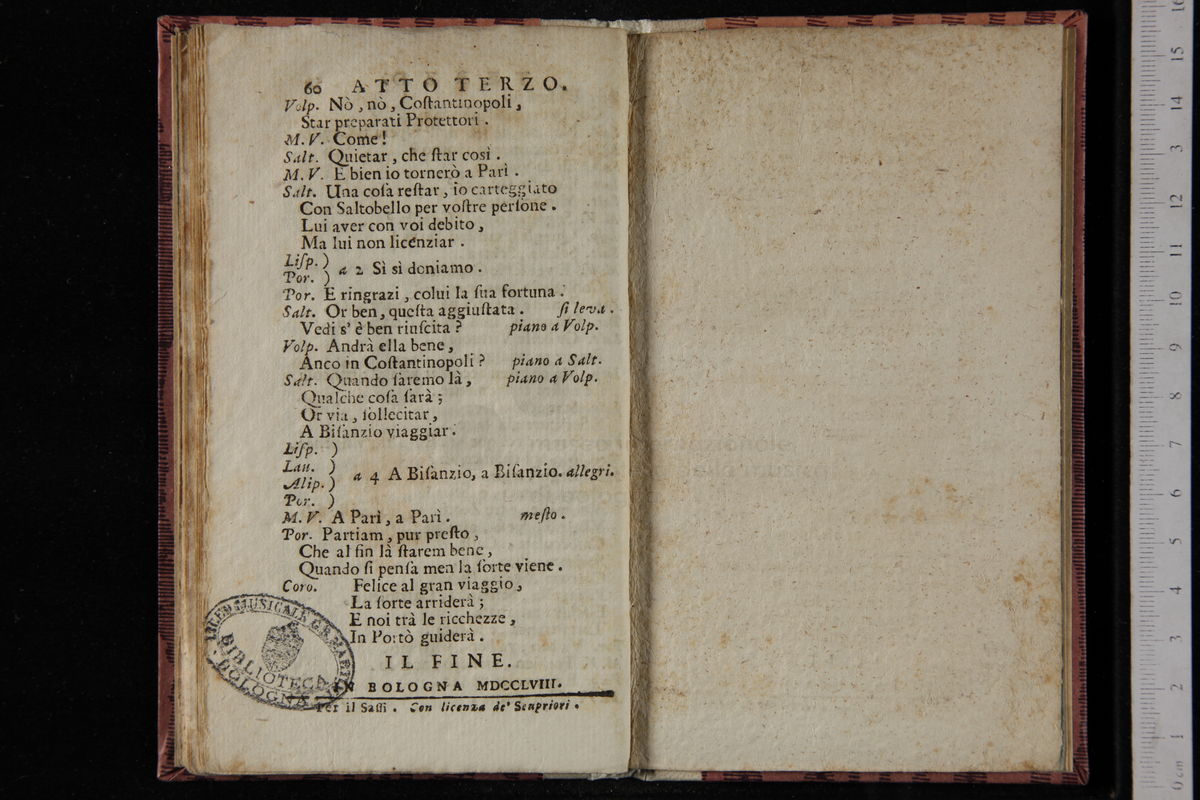 60 ATTO TERZO.
Volp. Nò, nò, Coſtantinopoli,
Star preparati Protettori.
M. V. Come!
Salt. Quietar, che ſtar così.
M. V. E bien io tornerò a Parì.
Salt. Una coſa reſtar, io carteggiato
Con Saltobello per voſtre perſone.
Lui aver con voi debito,
Ma lui non licenziar.
Liſp. )
Por. ) a 2 Sì sì doniamo.
Por. E ringrazi, colui la ſua fortuna.
Salt. Or ben, queſta aggiuſtata. ſi leva.
Vedi s' è ben riuſcita? piano a Volp.
Volp. Andrà ella bene,
Anco in Coſtantinopoli? piano a Salt.
Salt. Quando ſaremo là, piano a Volp.
Qualche coſa ſarà;
Or via, ſollecitar,
A Biſanzio viaggiar.
Liſp. )
Lau. )
Alip. ) a 4 A Biſanzio, a Biſanzio. allegri.
Por. )
M. V. A Parì, a Parì. meſto.
Por. Partiam, pur preſto,
Che al fin là ſtarem bene,
Quando ſi penſa men la ſorte viene.
Coro. Felice al gran viaggio,
La ſorte arriderà;
E noi trà le ricchezze,
In Portò guiderà.
IL FINE.
IN BOLOGNA MDCCLVIII.
Per il Saſſi. Con licenza de' Supriori.
MUSICALE G.B. MARTINI
BIBLIOTECA
BOLOGNA
15
14
3
12
11
10
9
8
7
6
5
4
3
2
1
0 cm